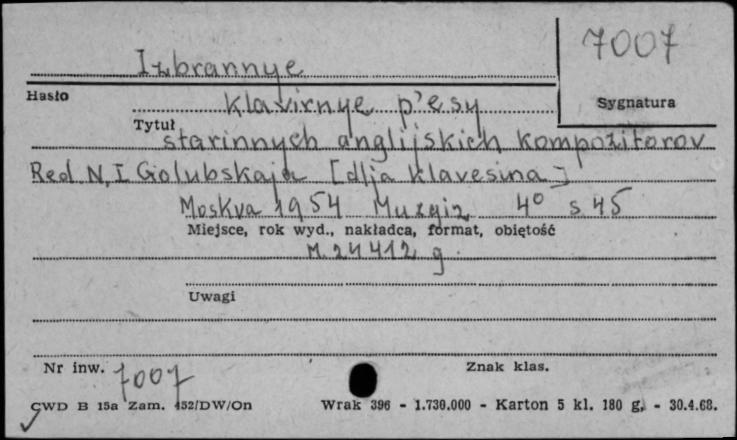 7007
Izbrannye
Hasło
klavirnye p'esy
Sygnatura
Tytuł
starinnych anglijskich kompozitorov
Red N. I Golubskaja [dlja klavesina]
Moskva 1954 Muzgiz 4° s 45
Miejsce, rok wyd., nakładca, format, obiętość
M. 24412 g.
Uwagi
Nr inw. 7007
Znak klas.
CWD B 15a Zam. 452/DW/On Wrak 396 - 1.730.000 - Karton 5 kl. 180 g. - 30.4.68.